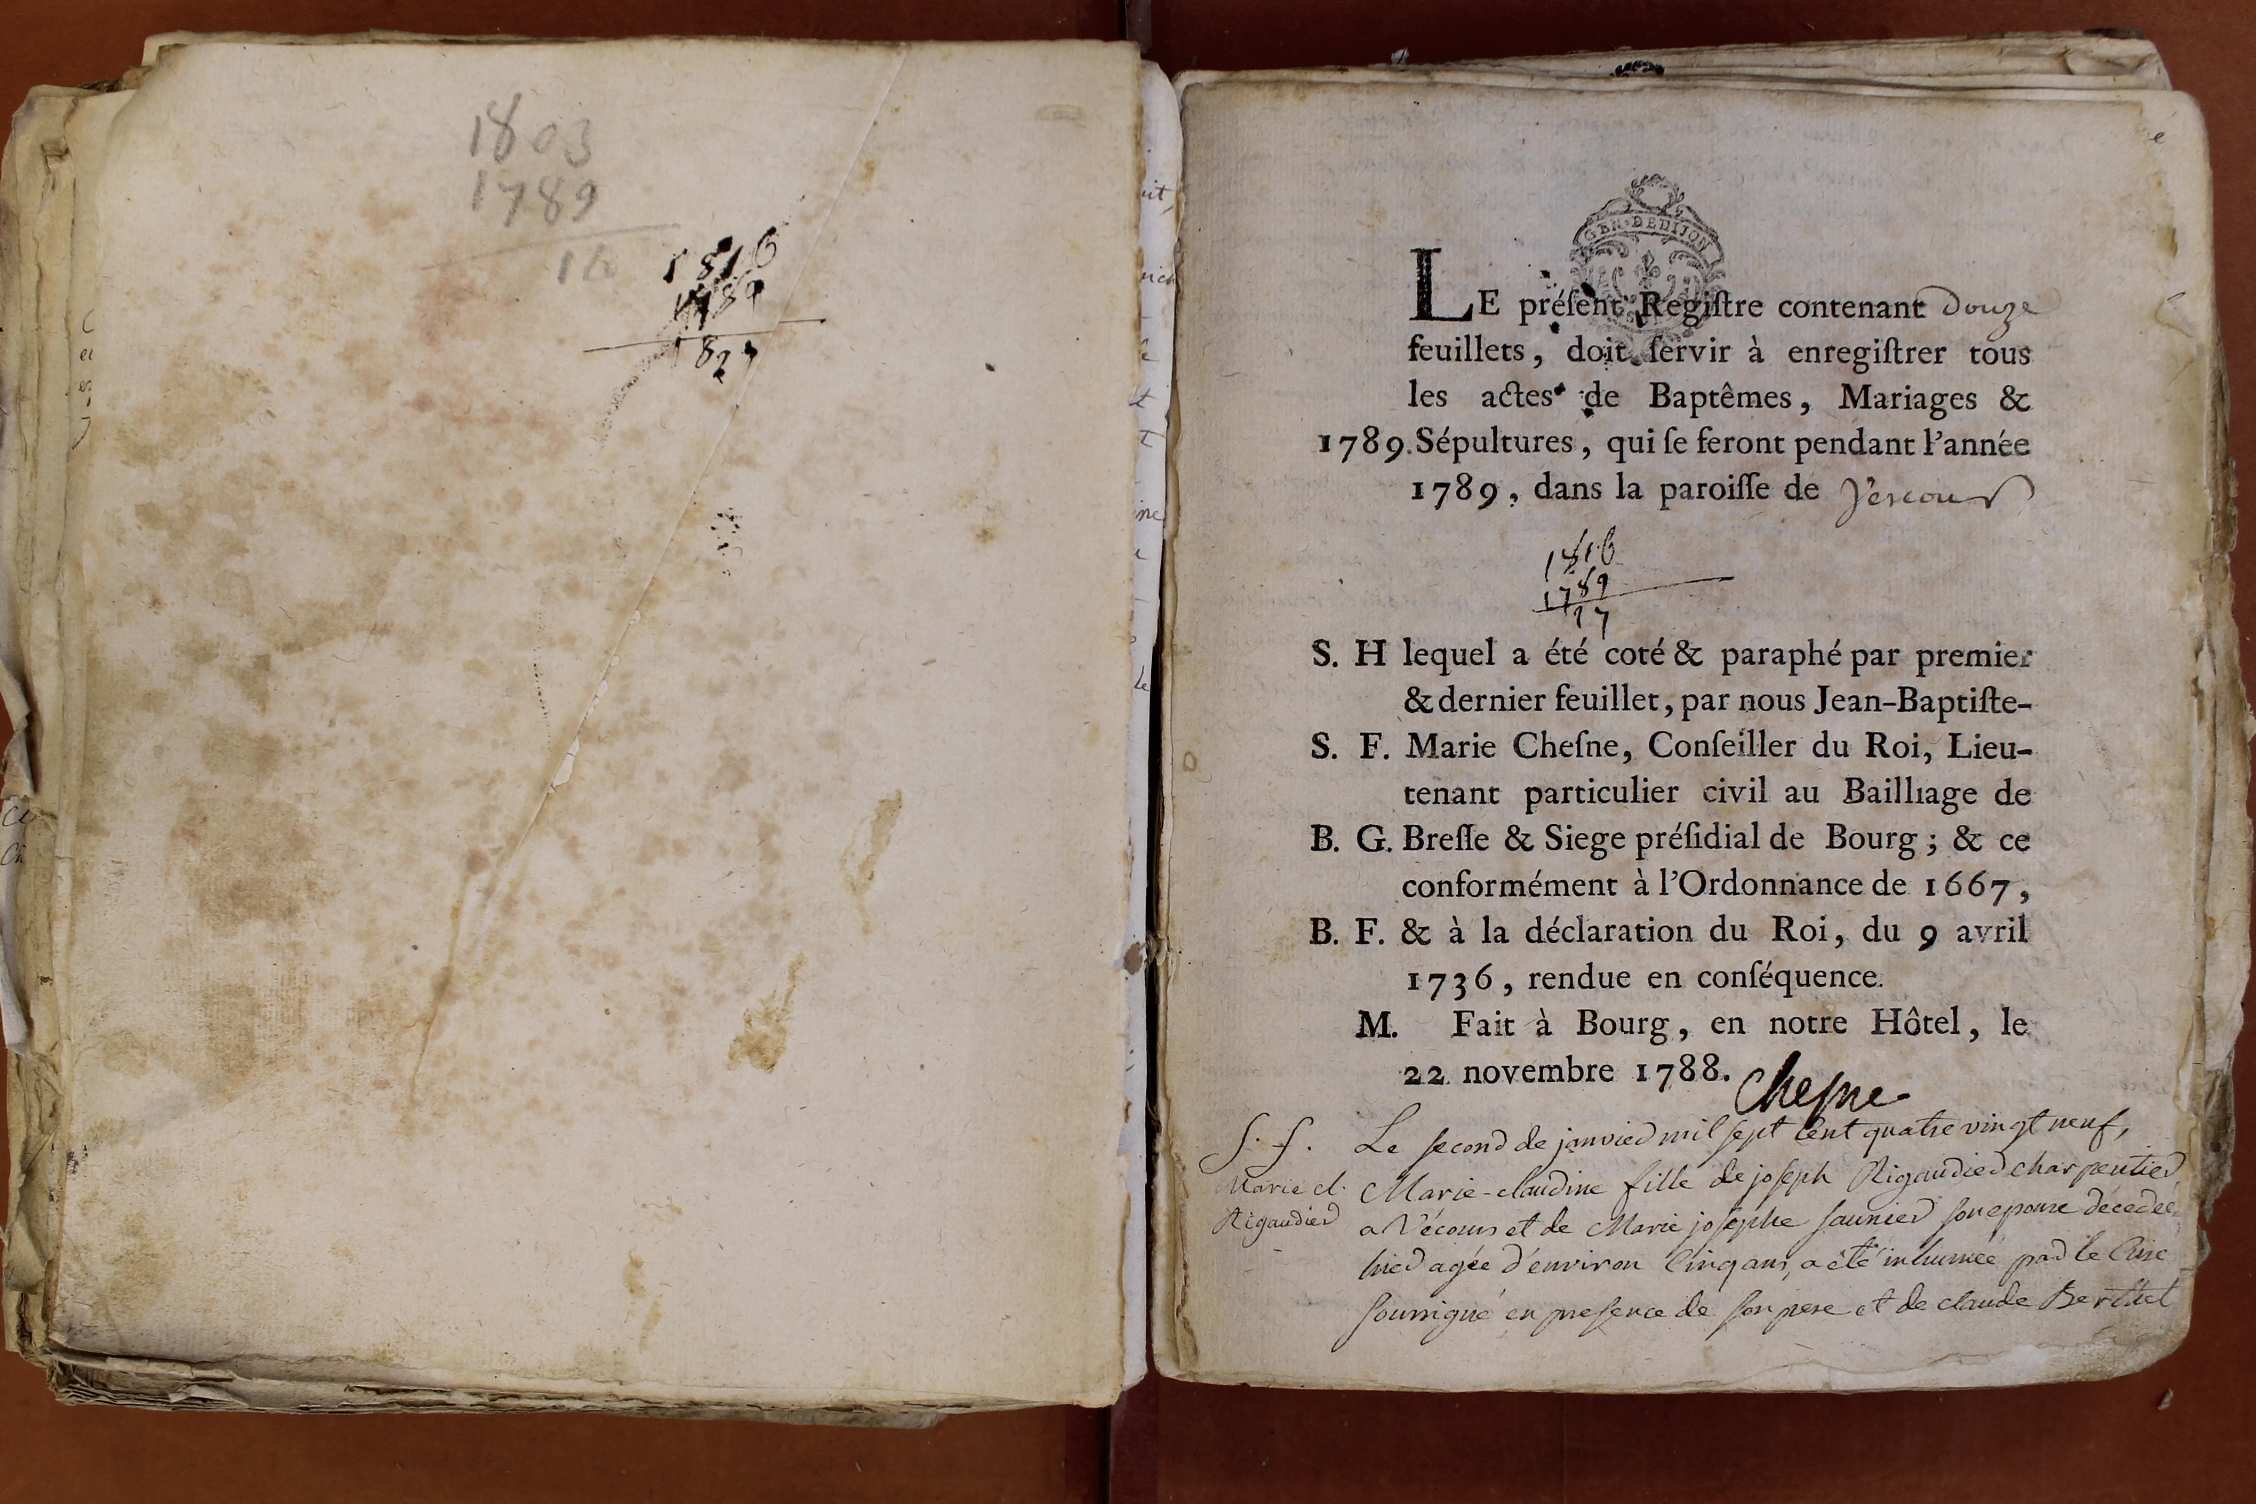 1803
1789
1816
1789
1827
GEN. DE DIJON
LE préſent Regiſtre contenant Douze
feuillets, doit ſervir à enregiſtrer tous
les actes de Baptêmes, Mariages &
1789. Sépultures, qui ſe feront pendant l'année
1789, dans la paroiſſe de Vescours
1816
1789
27
S. H lequel a été coté & paraphé par premier
& dernier feuillet, par nous Jean-Baptiſte-
S. F. Marie Cheſne, Conſeiller du Roi, Lieu-
tenant particulier civil au Bailliage de
B. G. Breſſe & Siege préſidial de Bourg ; & ce
conformément à l'Ordonnance de 1667,
B. F. & à la déclaration du Roi, du 9 avril
1736, rendue en conſéquence.
M. Fait à Bourg, en notre Hôtel, le
22 novembre 1788.
Cheſne
S. f. Le second de janvier mil sept cent quatre vingt neuf,
Marie cl. Marie-claudine fille de joseph Rigaudier charpentier
Rigaudier a Vécours et de Marie josephe saunier son epouse décedée
hier agée d'environ Cinq ans, a êté inhumée par le Curé
soussigné en presence de son pere et de claude Berthet